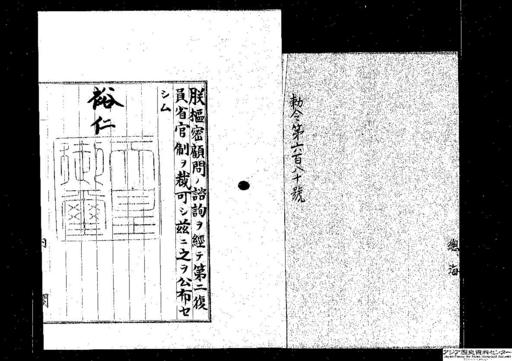 勅令第六百八十號
朕樞密顧問ノ諮詢ヲ經テ第二復
員省官制ヲ裁可シ茲ニ之ヲ公布セ
シム
裕仁
天皇御璽
内閣
アジア歴史資料センター